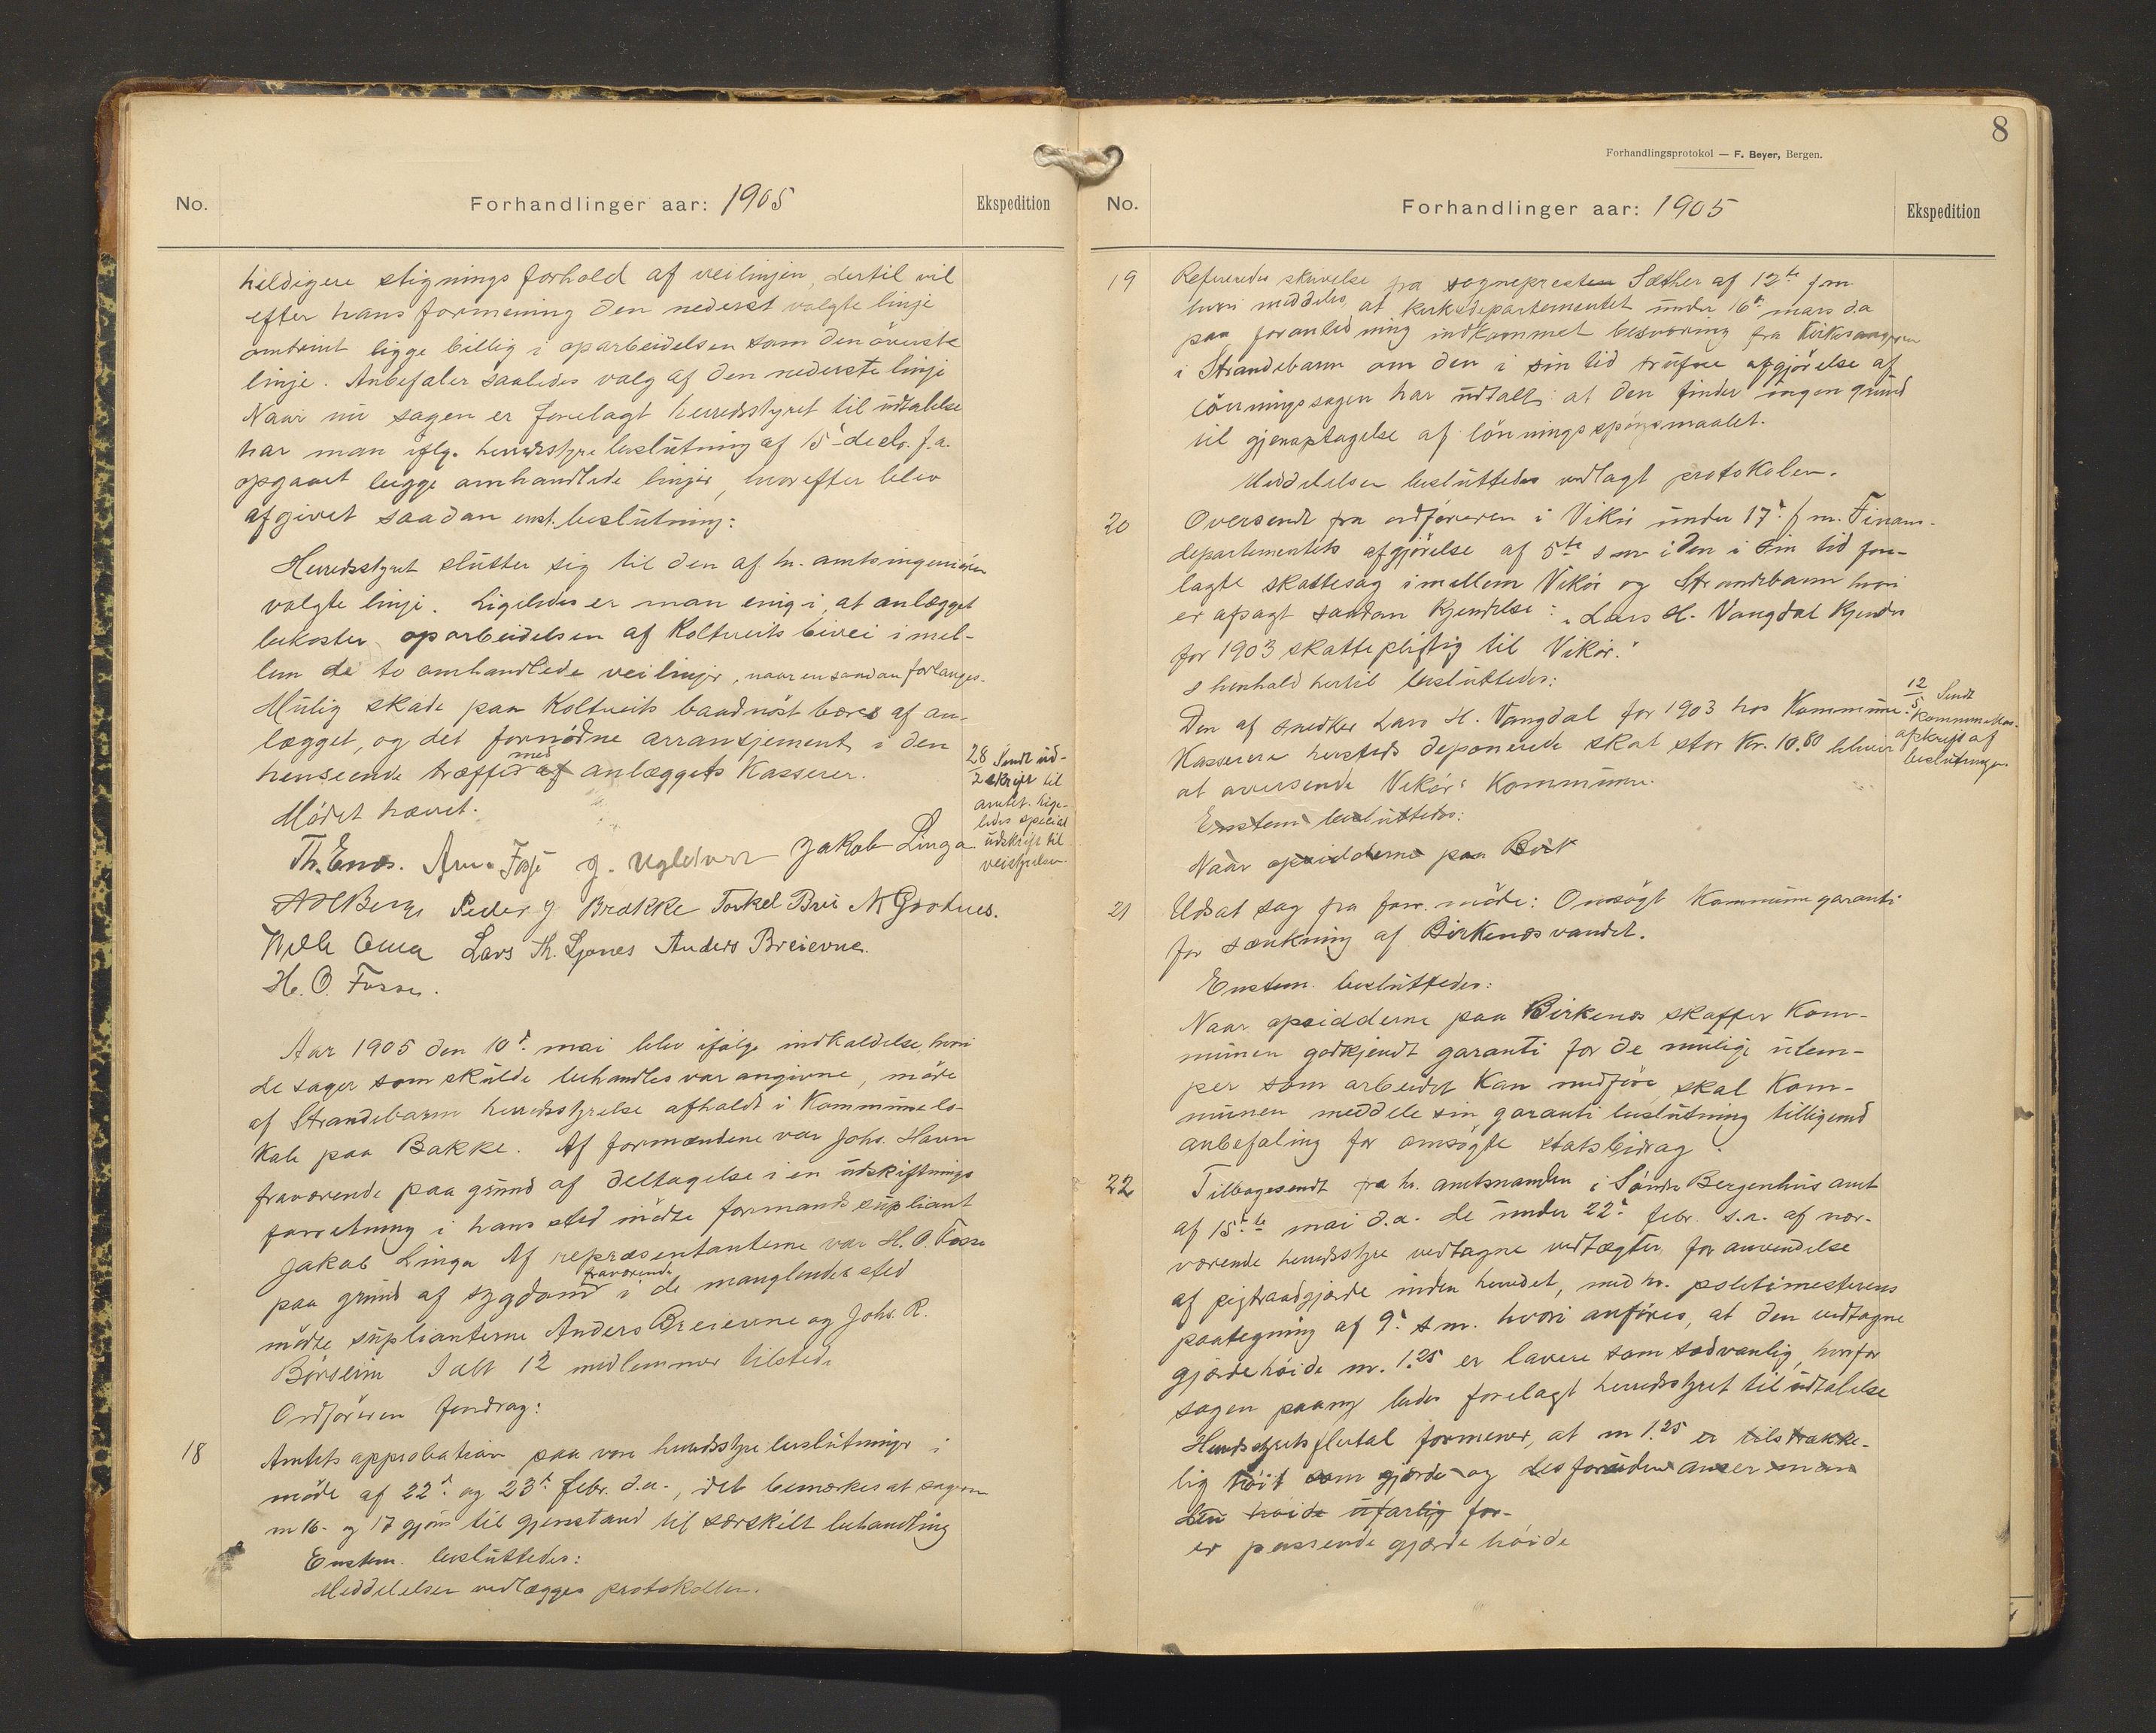 No.
Forhandlinger aar: 1905
Ekspedition
heldigere stigningsforhold af veilinjen, dertil vil
efter hans formening den nederst valgte linje
omtrint ligge billig i oparbeidelsen som den överste
linje. Anbefaler saaledes valg af den nederste linje
Naar nu sagen er forelagt herredsstyret til udtalelse
har man iflg. herredsstyre beslutning af 15de decbr. f.a.
opgaaet begge omhandlede linjer, hvorefter blev
afgivet saadan enst. beslutning:
Herredsstyret slutter sig til den af hr. amtsingeniören
valgte linje. Ligeledes er man enig i, at anlægget
bekoster oparbeidelsen af Koltveits bivei i mel-
lem de to omhandlede veilinjer, naar en saadan forlanges.
Mulig skade paa Koltveits baadnöst bæres af an-
lægget, og det fornödne arransjement i den
henseende træffes af med anlæggets Kasserer.
Mödet hævet.
28/2 Sendt ud-
skrift til
amtet. Lige-
ledes special
udskrift til
veistyrelsen
Th. Enes. Arne Fosse J. Jakob Linga
Peder J Brakke Torkel Brei N Grotnes.
Lars Th. Ljones Anders Breievne.
H. O. Fosse.
Aar 1905 den 10de mai blev ifölge indkaldelse, hvori
de sager som skulde behandles var angivne, möde
af Strandebarm herredsstyrelse afholdt i Kommunelo-
kale paa Bakke. Af formændene var Johs. Havn
fraværende paa grund af deltagelse i en udskiftnings
forretning i hans sted mödte formands supliant
Jakob Linga Af repræsentanterne var H. O. Fosse
paa grund af sygdom fraværende i de manglendes sted
mödte suplianterne Anders Breievne og Johs. R.
Börsheim Ialt 12 medlemmer tilstede
Ordföreren foredrog:
18
Amtets approbation paa vore herredsstyre beslutninger i
möde af 22de og 23de febr. d.a., det bemærkes at sagerne
nr 16. og 17 gjöres til gjenstand til særskilt behandling
Enstem. besluttedes:
Meddelelsen vedlægges protokollen.
8
Forhandlingsprotokol — F. Beyer, Bergen.
No.
Forhandlinger aar: 1905
Ekspedition
19
Refereredes skrivelse fra sognepresten Sæther af 12te f.m.
hvori meddeles, at kirkedepartementet under 16de mars d.a
paa foranledning indkommet besværing fra Kirkesangeren
i Strandebarm om den i sin tid trufne afgjörelse af
lönningssagen har udtalt at den finder ingen grund
til gjenoptagelse af lönningsspörgsmaalet.
Meddelelsen besluttedes vedlagt protokolen.
20
Oversendt fra ordföreren i Vikör under 17de f.m. Finans-
departementets afgjörelse af 5te s.m. i den i sin tid fore-
lagte skattesag imellem Vikör og Strandebarm hvori
er afsagt saadan kjendelse: „Lars H. Vangdal kjendes
for 1903 skattepligtig til Vikör."
I henhold hertil besluttedes:
Den af snedker Lars H. Vangdal for 1903 hos Kommune-
Kasserere hersteds deponerede skat stor Kr. 10.80 bliver
at oversende Vikör's Kommune.
12/5 Sendt
Kommunekas.
afskrift af
beslutningen.
Enstem besluttedes:
Naar opsidderne paa Birk
21
Udsat sag fra forr. möde: Omsögt Kommunegaranti
for sænkning af Birkenesvandet.
Enstem. besluttedes:
Naar opsidderne paa Birkenes skaffer Kom-
munen godkjendt garanti for de mulige ulem-
per som arbeidet kan medföre, skal Kom-
munen meddele sin garanti beslutning tilligemed
anbefaling for omsögte statsbidrag.
22
Tilbagesendt fra hr. amtmanden i Söndre Bergenhus amt
af 15de mai d.a. de under 22de febr. s.a. af nær-
værende herredsstyre vedtagne vedtægter for anvendelse
af pigtraadgjærde inden herredet, med hr. politimesterens
paategning af 9de s.m. hvori anföres, at den vedtagne
gjærdehöide m. 1.25 er lavere som sædvanlig, hvorfor
sagen paany bedes forelagt herredsstyret til udtalelse
Herredsstyrets flertal formener, at m 1.25 er tilstrække-
lig höit som gjærde og desforuden anser man
den höide ufarlig for-
er passende gjærde höide